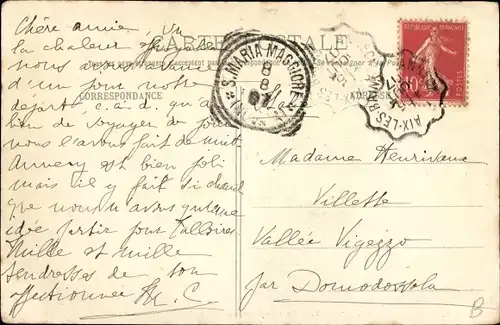 Chère amie, Vu
la chaleur
nous avons avancé
d'un jour notre
départ c. a. d. qu'au
lieu de voyager de jour
nous l'avons fait de nuit
Annecy est bien joli
mais il y fait si chaud
que nous n'avons qu'une
idée partir pour Talloires
Mille et mille
tendresses de ton
affectionnée
CARTE POSTALE
CORRESPONDANCE
S. MARIA MAGGIORE
8
8
07
AIX-LES-BAINS
REPUBLIQUE FRANÇAISE
10
POSTES
Madame
Villette
Vallée Vigezzo
par Domodossola
B